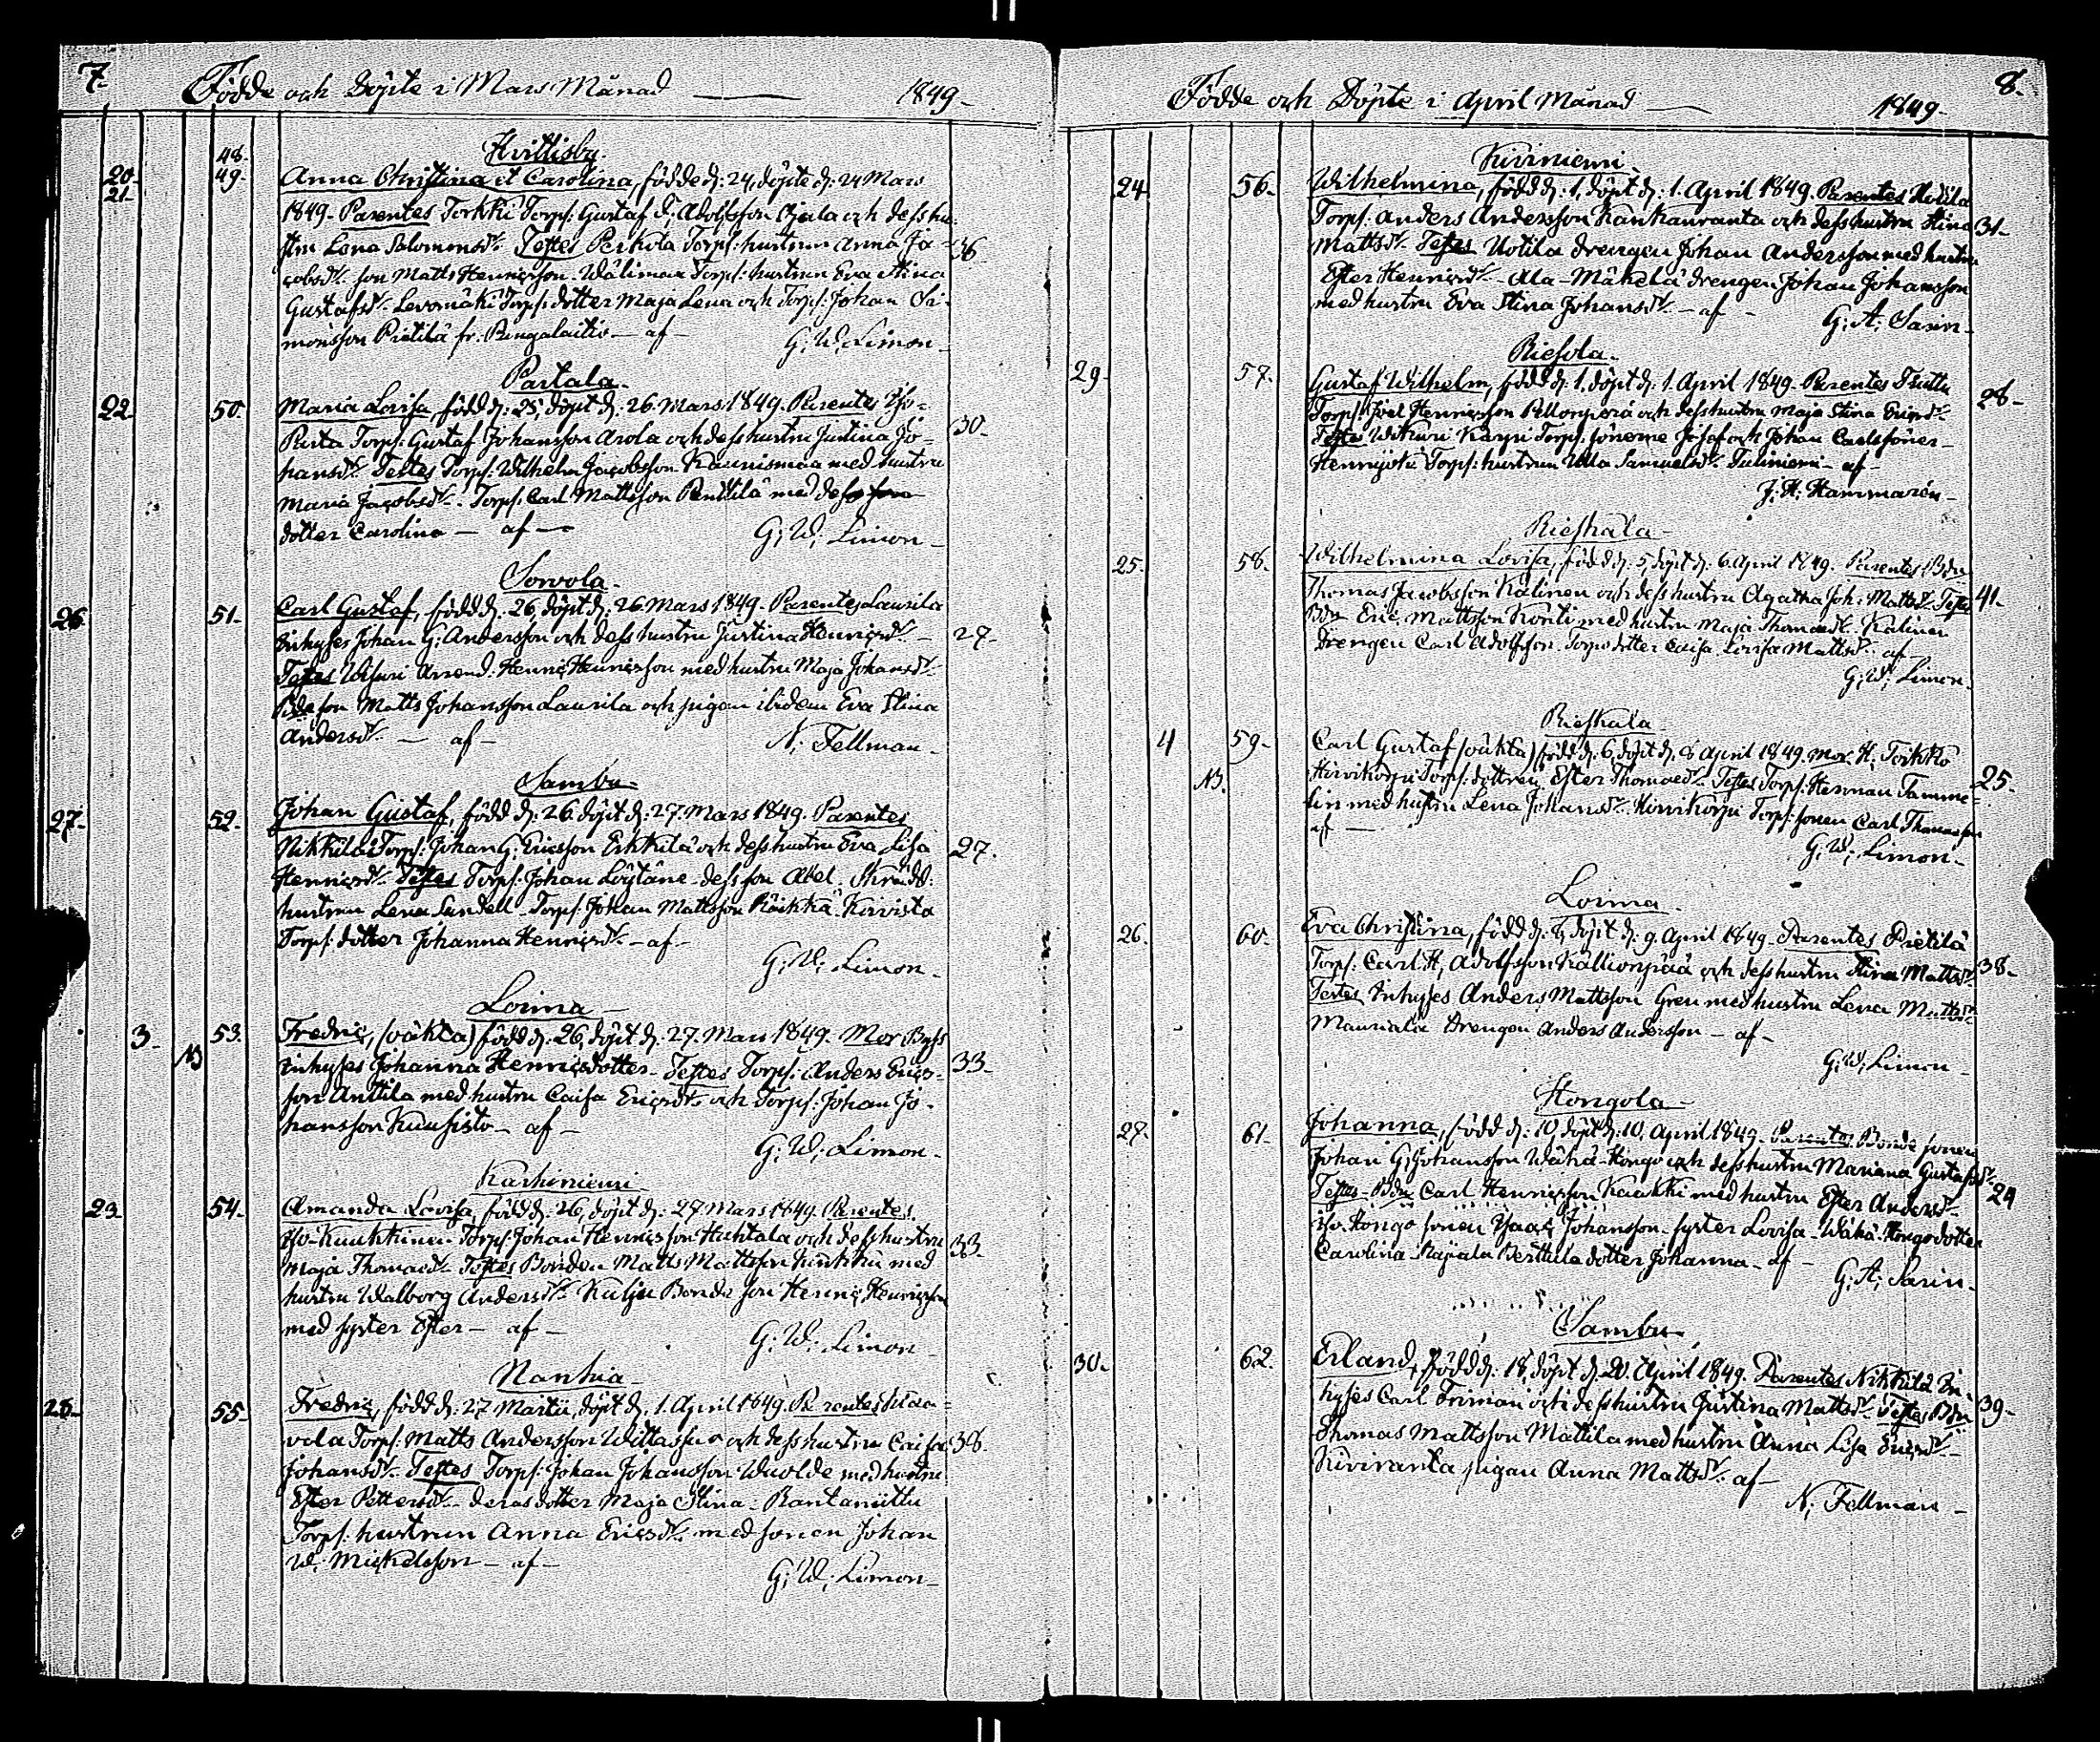 7.
Födde och Döpte i Mars Månad — 1849.
Hvittisby.
20. 48.
21. 49. Anna Christina et Carolina, födde d: 24, döpte d: 24 Mars
1849. Parentes Torkki Torp: Gustaf F. Adolfsson Ojala och dess hu-
stru Lena Salomonsdr. Testes Perkola Torp: hustrun Anna Ja- 36
cobsdr. son Matts Henricsson. Wälimaa Torp: hustrun Eva Stina
Gustafsdr. Levomäki Torp: dotter Maja Lena och Torp: Johan Si-
monsson Pietilä fr. Pungalaitio — af —
G: W: Limon.
Partala.
22. 50. Maria Lovisa, född d: 25, döpt d: 26 Mars 1849. Parentes Iso-
Torp: Gustaf Johansson Arola och dess hustru Justina Jo- 30.
hansdr. Testes Torp: Wilhelm Jacobsson Kaunismaa med hustru
Maria Jacobsdr. Torp: Carl Mattsson Penttilä med dess
dotter Carolina — af —
G: W: Limon.
Sorvola.
26. 51. Carl Gustaf, född d: 26, döpt d: 26 Mars 1849. Parentes Laurila
Inhyses Johan G: Andersson och dess hustru Justina Henricsdr. 27.
Testes Arrend. Henric Henricsson med hustru Maja Johansdr.
Bde son Matts Johansson Laurila och pigan ibidem Eva Stina
Andersdr. — af —
N: Fellman.
Sambu.
27. 52. Johan Gustaf, född d: 26, döpt d: 27. Mars 1849. Parentes
Nikkilä Torp: Johan G: Ericsson Erkkilä och dess hustru Eva Lisa 27.
Henricsdr. Testes Torp: Johan Löytäne dess son Abel. Skrädd:
hustrun Lena Sundell. Torp: Johan Mattsson Räikkä. Koivisto
Torp: dotter Johanna Henricsdr. — af —
G: W: Limon.
Loima
3. NB 53. Fredric, (oäkta) född d: 26, döpt d: 27. Mars 1849. Mor
Inhyses Johanna Henricsdotter. Testes Torp: Anders Erics- 33
son Anttila med hustru Caisa Ericsdr. och Torp: Johan Jo-
hansson Kuusisto — af —
G: W: Limon.
Karhiniemi
23. 54. Amanda Lovisa, född d: 26, döpt d: 27 Mars 1849. Parentes
Torp: Johan Henricsson Huhtala och dess hustru 33.
Maja Thomasdr. Testes Bonden Matts Mattsson med
hustru Walborg Andersdr. Kulju Bonde son Henric Henricsson
med syster Ester — af —
G: W: Limon
Nanhia
28. 55. Fredric, född d: 27 Martii, döpt d: 1. April 1849. Parentes
Torp: Matts Andersson och dess hustru Caisa 38.
Johansdr. Testes Torp: Johan Johansson Wuolde med hustru
Ester Pettersdr. deras dotter Maja Stina. Rantaniittu
Torp: hustrun Anna Ericsdr. med sonen Johan
W. Mickelsson — af —
G: W: Limon.
8.
Födde och Döpte i April Månad — 1849.
Kiviniemi
24. 56. Wilhelmina, född d: 1, döpt d: 1. April 1849. Parentes Uotila
Torp: Anders Andersson Kankanranta och dess hustru Stina 31.
Mattsdr. Testes Uotila drengen Johan Andersson med hustru
Ester Henricsdr. Ala-Mäkelä drengen Johan Johansson
med hustru Eva Stina Johansdr. — af —
G: A: Sarin.
Riesola.
29. 57. Gustaf Wilhelm, född d: 1, döpt d: 1. April 1849. Parentes
Torp: Joel Henricsson Pellonperä och dess hustru Maja Stina Ericsdr. 28.
Testes Torp: sönerne Josef och Johan Carlssöner.
Hennijoki Torp: hustrun Ulla Samuelsdr. — af —
J: H: Hammarén.
Rieskala
25. 58. Wilhelmina Lovisa, född d: 5, döpt d: 6. April 1849. Parentes Bdn
Thomas Jacobsson Kalinen och dess hustru Agatha Joh: Mattsdr. Testes 41.
Bdn Eric Mattsson Kontti med hustru Maja Thomasdr. Kalinen
drengen Carl Adolfsson. Torp: dotter Caisa Lovisa Mattsdr. af —
G: W: Limon.
Rieskala
4 NB. 59. Carl Gustaf (oäkta) född d: 6, döpt d: 8 April 1849. Mor H. Torkko
Hirvikorpi Torp: dottren Ester Thomasdr. Testes Torp: Herman Tamme- 25.
lin med hustru Lena Johansdr. Hirvikorpi Torp: sonen Carl Thomasson
af —
G: W: Limon.
Loima
26. 60. Eva Christina, född d: 8, döpt d: 9. April 1849. Parentes Pietilä
Torp: Carl H. Adolfsson Kallionpää och dess hustru Stina Mattsdr. 38.
Testes Inhyses Anders Mattsson Gren med hustru Lena Mattsdr.
Mauriala Drengen Anders Andersson — af —
G: W: Limon
Hongola
27. 61. Johanna, född d: 10, döpt d: 10. April 1849. Parentes Bonde sonen
Johan G: Johansson Wähä-Hongo och dess hustru Mariana Gustafsdr.
Testes Bdn Carl Henricsson Kaukki med hustru Ester Andersdr. 24
Iso-Hongo sonen Isaac Johansson, syster Lovisa. Wähä-Hongo dotter
Carolina. Rajiala dotter Johanna — af —
G: A: Sarin.
Sambu
30. 62. Erland, född d: 18, döpt d: 20. April 1849. Parentes Nikkilä In-
hyses Carl Friman och dess hustru Justina Mattsdr. Testes Bdn 39.
Thomas Mattsson Mattila med hustru Anna Lisa Ericsdr.
Kiviranta pigan Anna Mattsdr. af —
N: Fellman